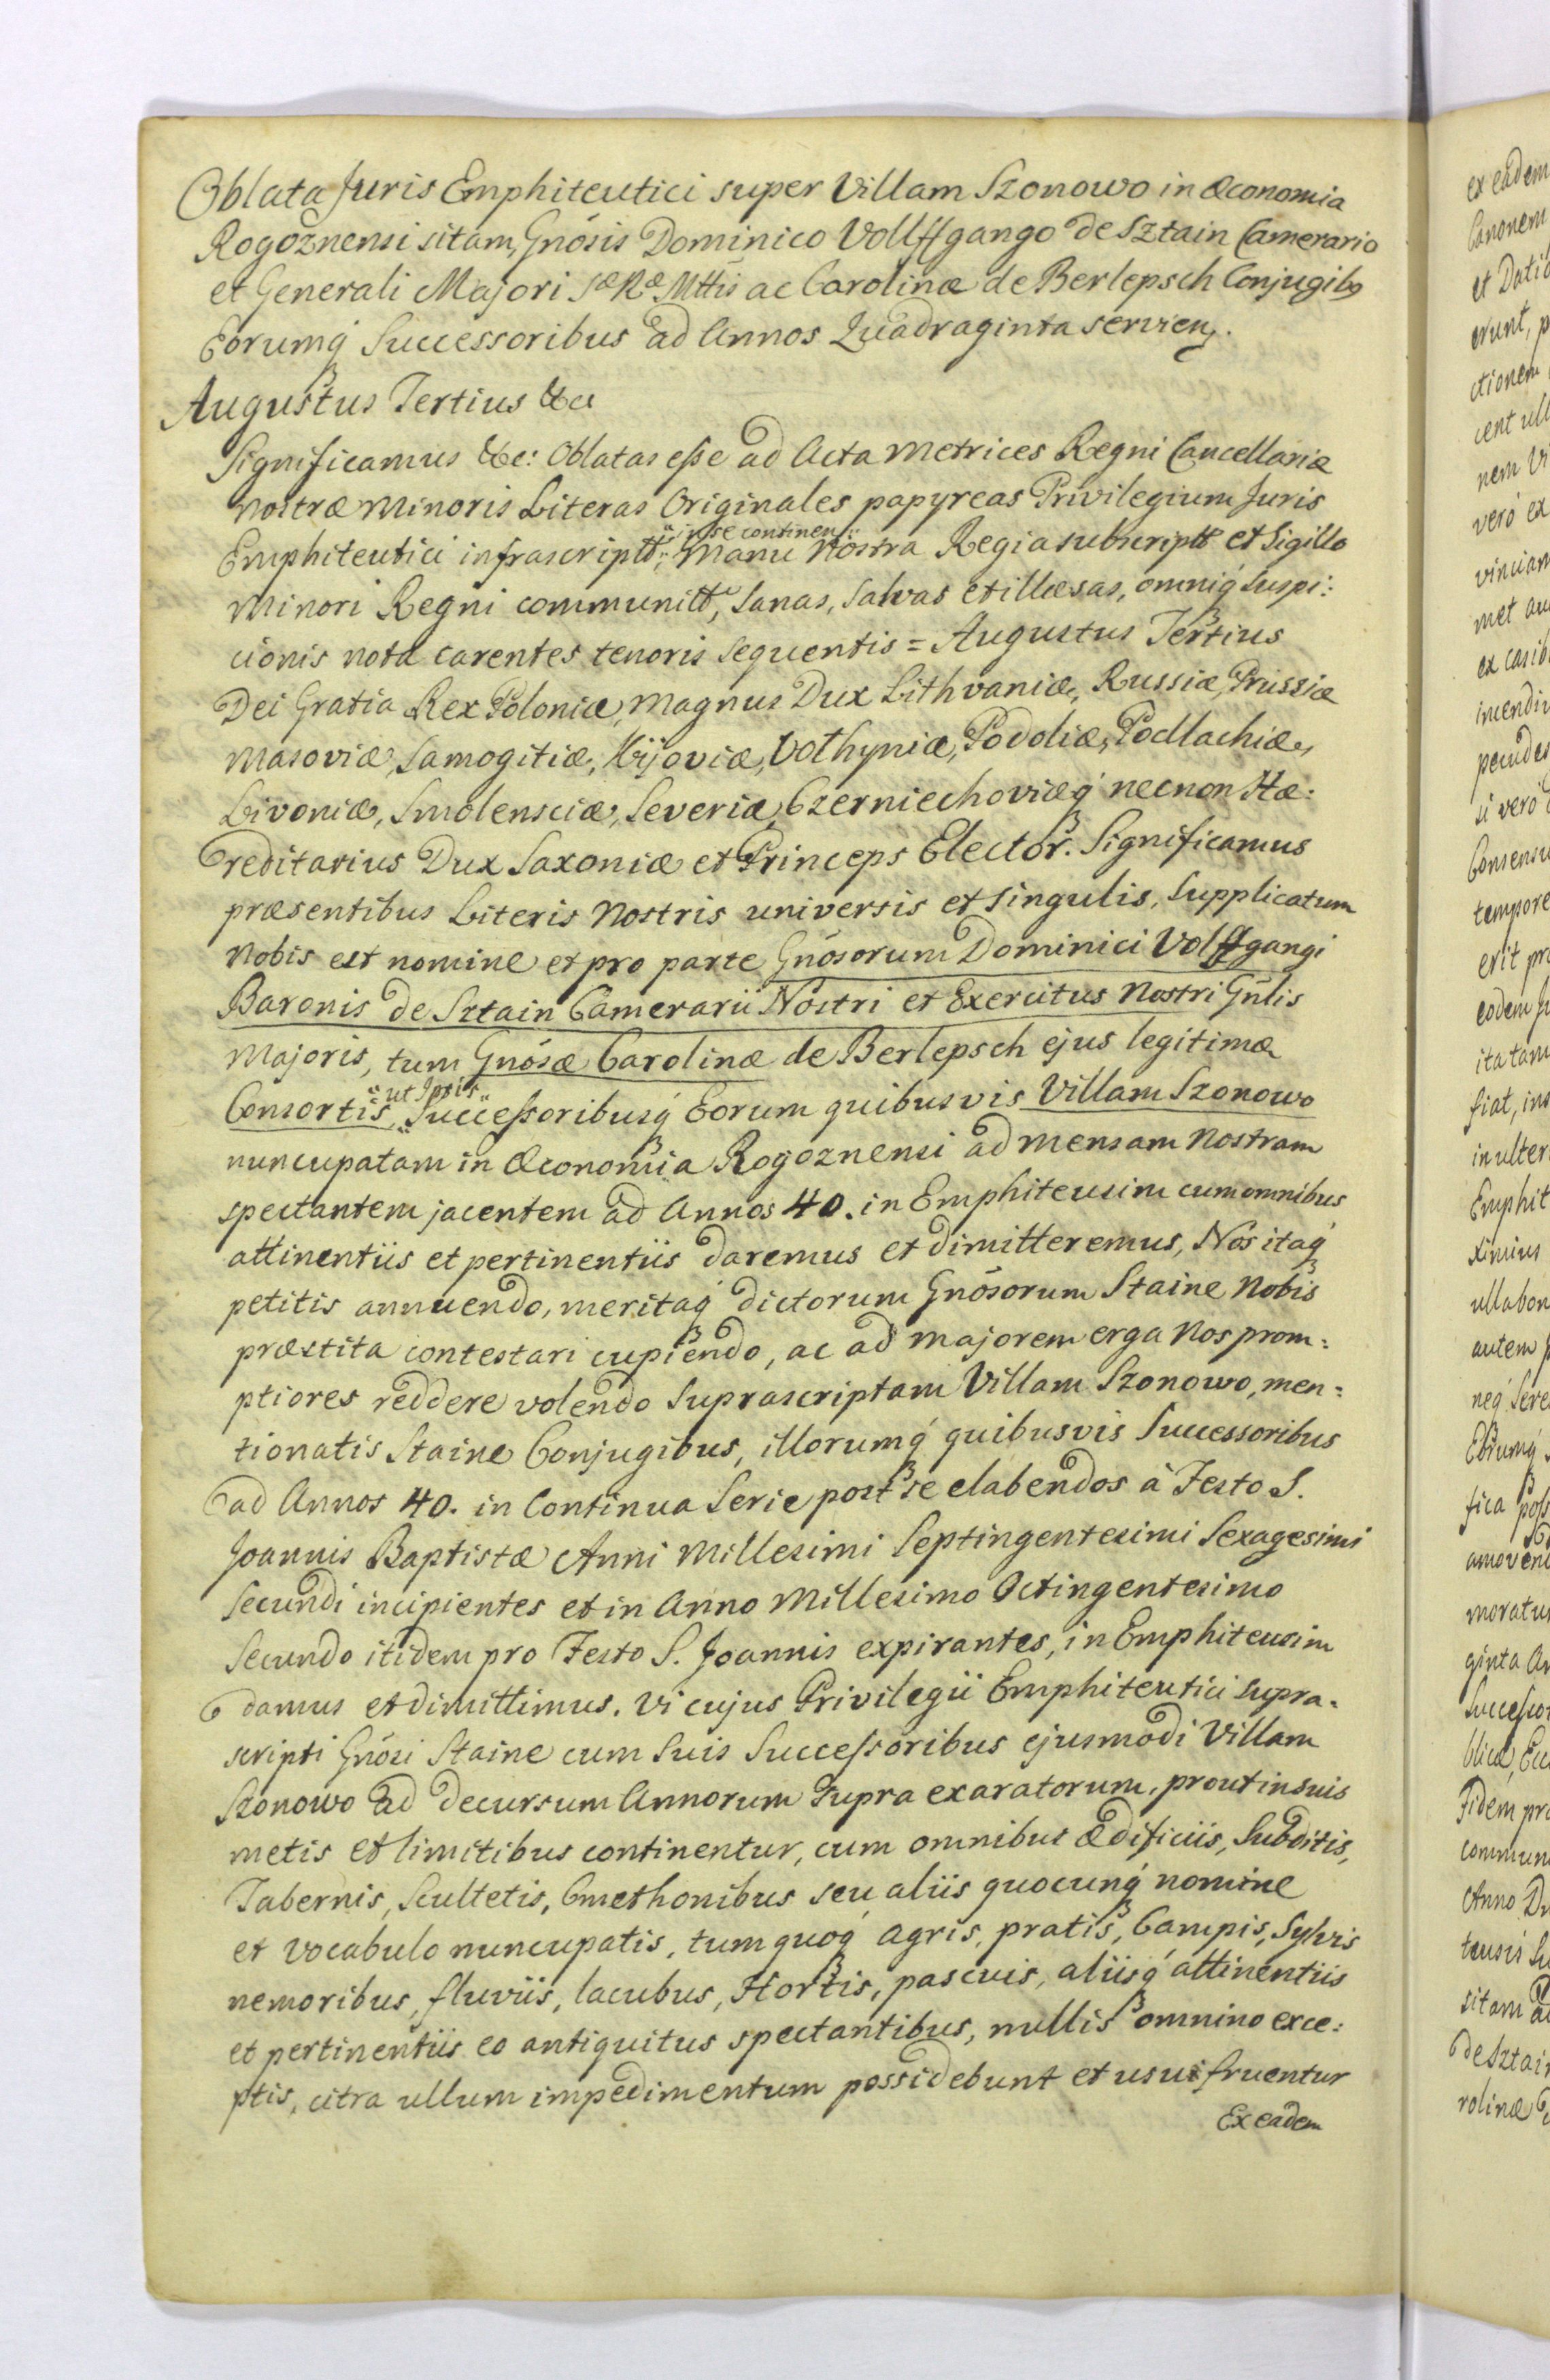 Oblata Juris Emphiteutici super Villam Szonowo in Œconomia
Rogoznensi sitam, Gnõsis Dominico Vollffgango de Sztain Camerario
et Generali Majori Sæ Ræ Mttis ac Carolinæ de Berlepsch Conjugibꝫ
Eorumq́ꝫ Successoribus ad Annos Quadraginta servienꝭ.
Augustus Tertius &c
Significamus &c: Oblatas esse ad Acta Metrices Regni Cancellariæ
Nostræ Minoris Literas Originales papyreas Privilegium Juris
„in se continenꝭ„
Emphiteutici infrascriptt, „ Manu Nostra Regia subscriptt et Sigillo
Minori Regni communitt, Sanas, Salvas et illæsas, omniq́ꝫ Suspi:
cionis nota carentes tenoris sequentis = Augustus Tertius
Dei Gratia Rex Poloniæ, Magnus Dux Lithvaniæ, Russiæ, Prussiæ
Masoviæ, Samogitiæ, Kijoviæ, Volhyniæ, Podoliæ, Podlachiæ,
Livoniæ, Smolensciæ, Severiæ, Czerniechoviæq́ꝫ necnon Hæ:
reditarius Dux Saxoniæ et Princeps Elector. Significamus
præsentibus Literis Nostris universis et singulis, Supplicatum
Nobis est nomine et pro parte Gnõsorum Dominici Volffgangi
Baronis de Sztain Camerarii Nostri et Exercitus Nostri Gnlis
Majoris, tum Gnõsæ Carolinæ de Berlepsch ejus legitimæ
„ut Ipsis„
Consortis, „Successoribusq́ꝫ Eorum quibusvis Villam Szonowo
nuncupatam in Œconomia Rogoznensi ad mensam Nostram
spectantem jacentem ad Annos 40. in Emphiteusim cum omnibus
attinentiis et pertinentiis daremus et dimitteremus, Nos itaq́ꝫ
petitis annuendo, meritaq́ꝫ dictorum Gnõsorum Staine Nobis
præstita contestari cupiendo, ac ad majorem erga Nos prom:
ptiores reddere volendo Suprascriptam Villam Szonowo, men:
tionatis Staine Conjugibus, illorumq́ꝫ quibusvis Successoribus
ad Annos 40. in Continua Serie post se elabendos à Festo S.
Joannis Baptistæ Anni Millesimi Septingentesimi Sexagesimi
Secundi incipientes et in Anno Millesimo Octingentesimo
Secundo itidem pro Festo S. Joannis expirantes, in Emphiteusim
damus et dimittimus. Vi cujus Privilegii Emphiteutici Supra:
scripti Gnõsi Staine cum Suis Successoribus ejusmodi Villam
Szonowo ad decursum Annorum supra exaratorum, prout in suis
metis et limitibus continentur, cum omnibus ædificiis, Subditis,
Tabernis, Scultetis, Cmethonibus seu aliis quocunq́ꝫ nomine
et vocabulo nuncupatis, tum quoq́ꝫ agris, pratis, Campis, Sylvis
nemoribus, fluviis, lacubus, Hortis, pascuis, aliisq́ꝫ attinentiis
et pertinentiis eo antiquitus spectantibus, nullis omnino exce:
ptis, citra ullum impedimentum possidebunt et usui fruentur
Ex eadem